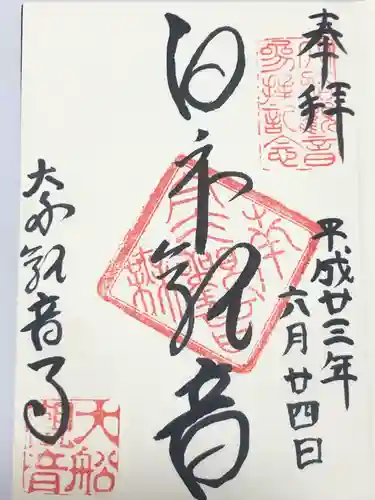 奉拝
平成廿三年
六月廿四日
白衣観音
大船観音寺
大船
観音